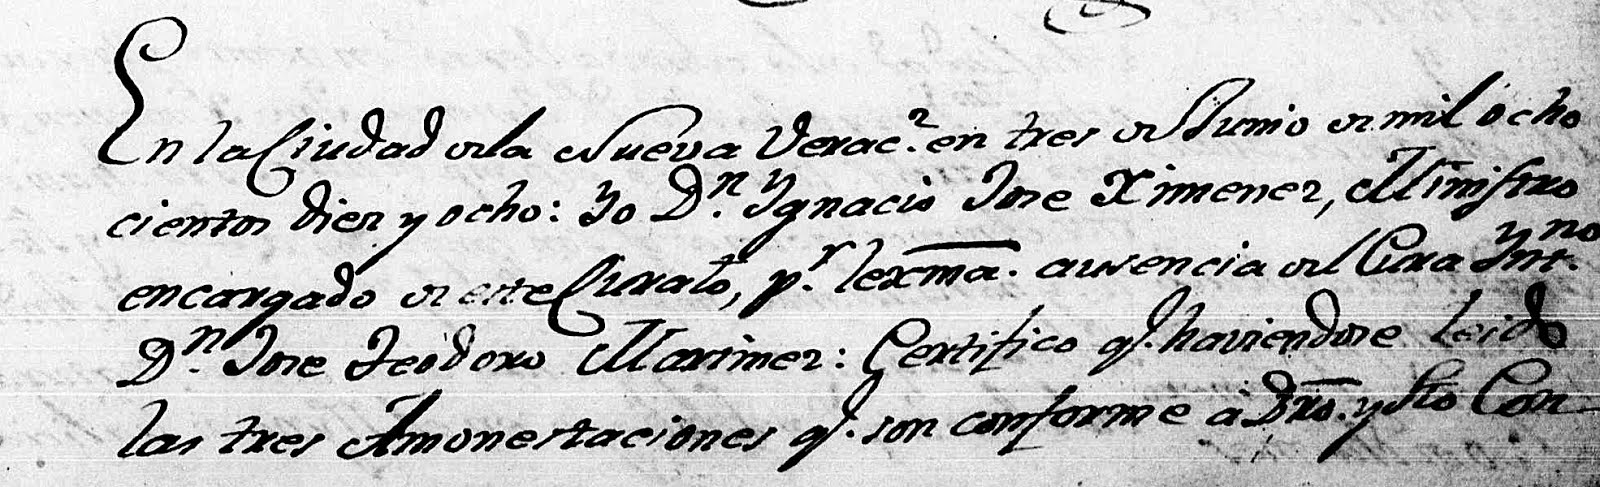 En la Ciudad de la Nueva Verac.z en tres de Junio de mil ocho
cientos diez y ocho: Yo D.n Ygnacio Jose Ximenez, Ministro
encargado de este Curato, p.r lexma. ausencia del Cura Ynt.no
D.n Jose Teodoro Martinez: Certifico q.e haviendose leido
las tres Amonestaciones q.e son conforme à Dro. y Sto Con-